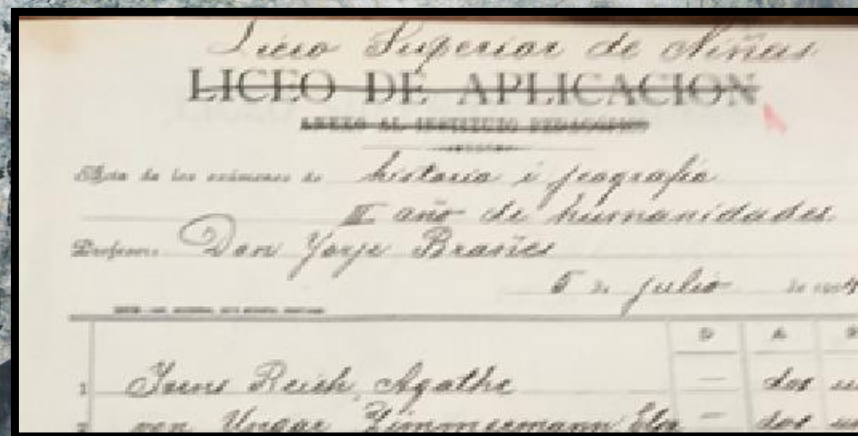 Liceo Superior de Niñas
LICEO DE APLICACION
ANEXO AL INSTITUTO PEDAGÓGICO
Acta de los exámenes de historia i jeografía
II año de humanidades
Profesor: Don Jorje Brañes
5 de julio de
D A
1 Reich, Agathe — dos
2 von Ungar Zimmermann — dos